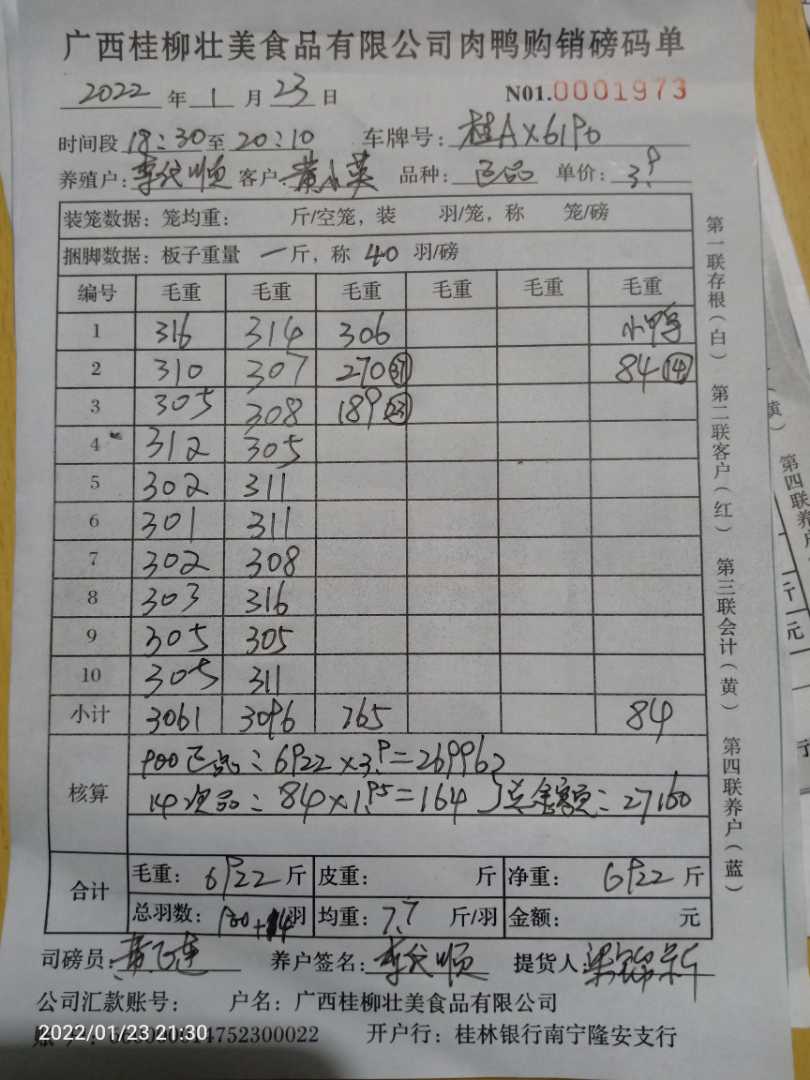 广西桂柳壮美食品有限公司肉鸭购销磅码单
2022 年 1 月 23 日 N01.0001973
时间段 18:30 至 20:10 车牌号: 桂AX61P0
养殖户: 李代顺 客户: 黄小英 品种: 正品 单价: 3.9
装笼数据: 笼均重: 斤/空笼, 装 羽/笼, 称 笼/磅
捆脚数据: 板子重量 一 斤, 称 40 羽/磅
编号 毛重 毛重 毛重 毛重 毛重 毛重
1 316 314 306 小鸭
2 310 307 270 (37) 84 (14)
3 305 308 189 (23)
4 312 305
5 302 311
6 301 311
7 302 308
8 303 316
9 305 305
10 305 311
小计 3061 3096 765 84
核算
900正品: 6922×3.9=26996.2
14次品: 84×1.95=164 总金额: 27160
合计
毛重: 6922 斤 皮重: 斤 净重: 6922 斤
总羽数: 900+14 羽 均重: 7.7 斤/羽 金额: 元
司磅员: 黄飞连 养户签名: 李代顺 提货人
公司汇款账号: 户名: 广西桂柳壮美食品有限公司
4752300022 开户行: 桂林银行南宁隆安支行
2022/01/23 21:30
第一联存根(白) 第二联客户(红) 第三联会计(黄) 第四联养户(蓝)